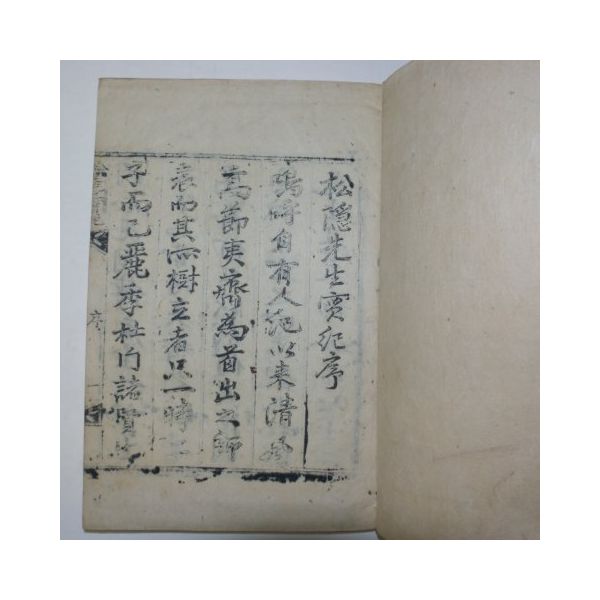 松隱先生實紀序
嗚呼自有人紀以來淸修
高節夷齊爲首出之師
表而其所樹立者只一時二
子而已麗季杜門諸賢
序